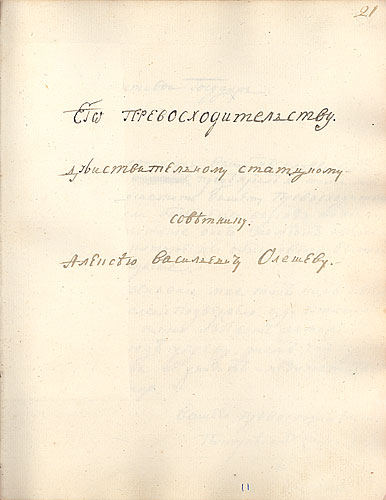 21
Егѡ превосходителству.
дѣиствителному статцкому
совѣтнику.
Алеѯѣю Василиевичу Олешеву.
11